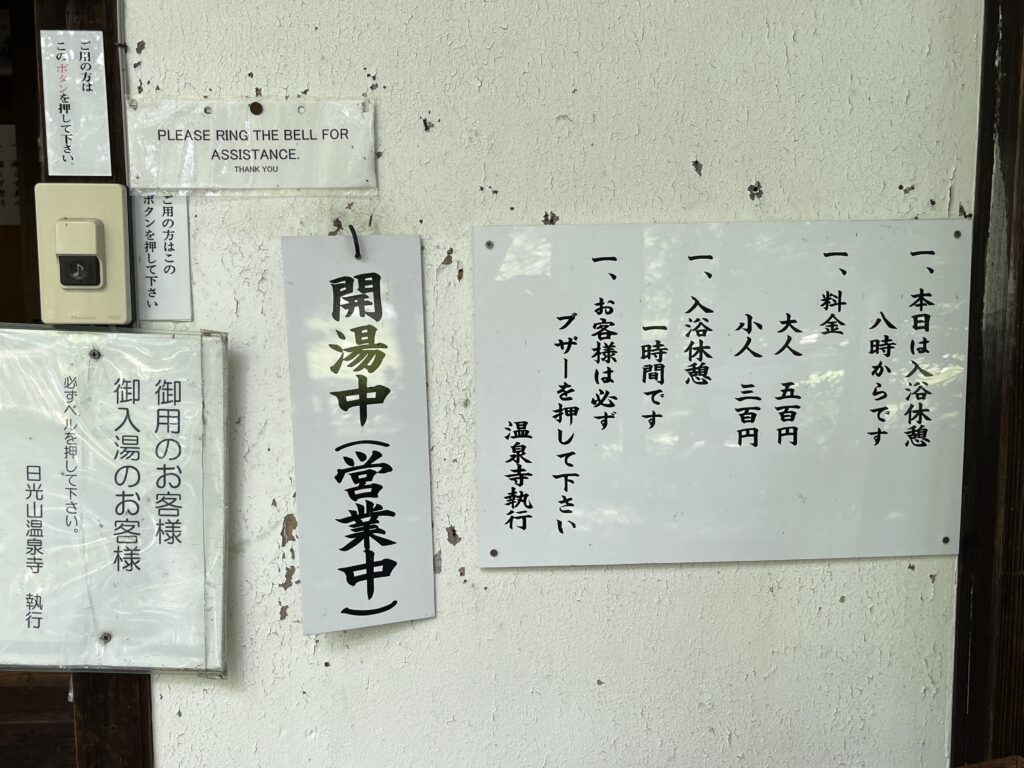 ご用の方は
このボタンを押して下さい。
PLEASE RING THE BELL FOR
ASSISTANCE.
THANK YOU
ご用の方はこの
ボタンを押して下さい
御用のお客様
御入湯のお客様
必ずベルを押して下さい。
日光山温泉寺 執行
開湯中(営業中)
一、本日は入浴休憩
八時からです
一、料金
大人 五百円
小人 三百円
一、入浴休憩
一時間です
一、お客様は必ず
ブザーを押して下さい
温泉寺執行